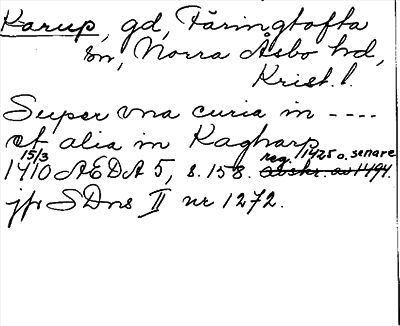 Karup, gd, Färingtofta
sn, Norra Åsbo hd,
Krist. l.
Super vna curia in ----
et alia in Kagharp
15/3 reg. 1425 o. senare
1410 AEDA 5, s. 158. abskr. av 1494.
jfr SDns II nr 1272.